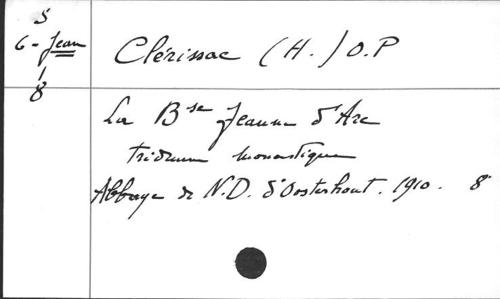 5
6 - Jean
1
8
Clérissac (H.) O.P
La Bse Jeanne d'Arc
triduum monastique
Abbaye de N.D. d'Oosterhout. 1910. 8°